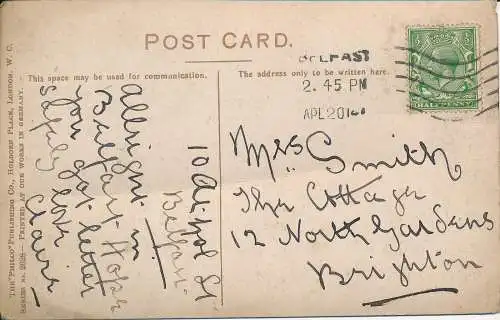 POST CARD.
This space may be used for communication.
The address only to be written here.
BELFAST
2. 45 PM
APL 20 14
HALFPENNY
10 St
Belfast
Allright in
Belfast Hope
you got letter
safely love
Claire
Mrs Smith
The Cottage
12 North Gardens
Brighton
THE "PHILCO" PUBLISHING CO., HOLBORN PLACE, LONDON, W. C.
SERIES No. PRINTED AT OUR WORKS IN GERMANY.